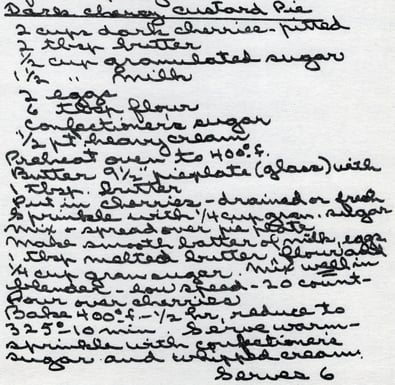 Dark cherry Custard Pie
2 cups dark cherries - pitted
2 tbsp butter
1/2 cup granulated sugar
1 1/2 " milk
2 eggs
6 tbsp flour
Confectioner's sugar
1/2 pt. heavy cream
Preheat oven to 400° f.
Butter 9 1/2" pie plate (glass) with
1 tbsp. butter
Put in cherries - drained or fresh
Sprinkle with 1/4 cup gran. sugar
Mix & spread over pie plate
Make smooth batter of milk, eggs
1 tbsp melted butter, flour and
1/4 cup gran sugar. Mix well in
blender - low speed - 20 count -
Pour over cherries
Bake 400° f. - 1/2 hr, reduce to
325° - 10 min. Serve warm -
sprinkle with confectioner's
sugar and whipped cream.
Serves 6